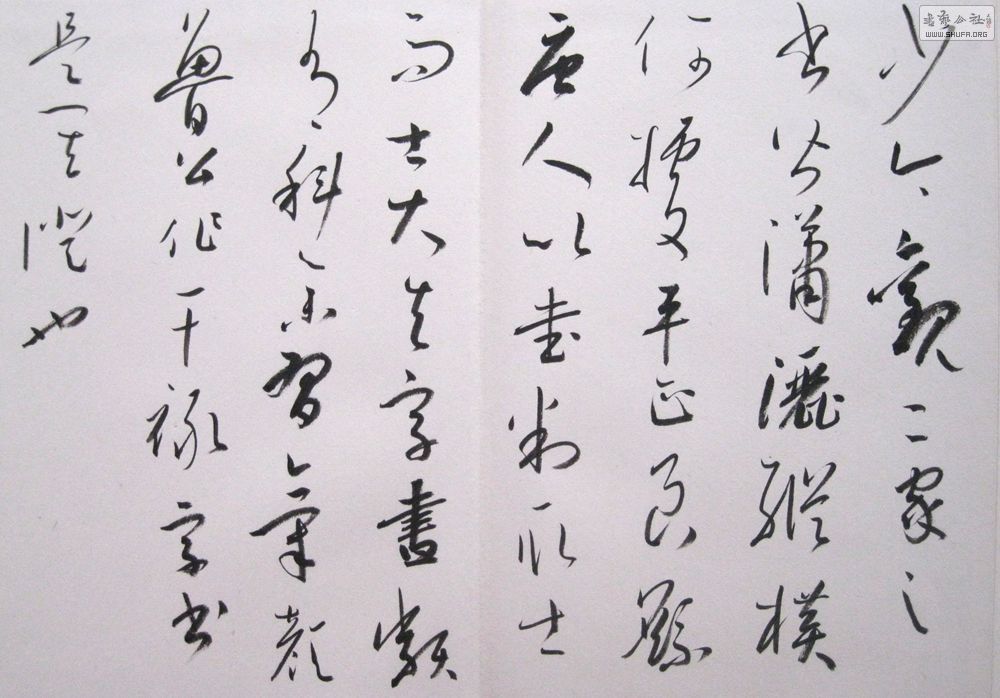 少今觀二家之
书皆瀟灑縱橫
何拘平正良繇
唐人以书判取士
而士大夫字書類
有科举習氣顏
魯公作干祿字书
是其證也
書藝公社
WWW.SHUFA.ORG